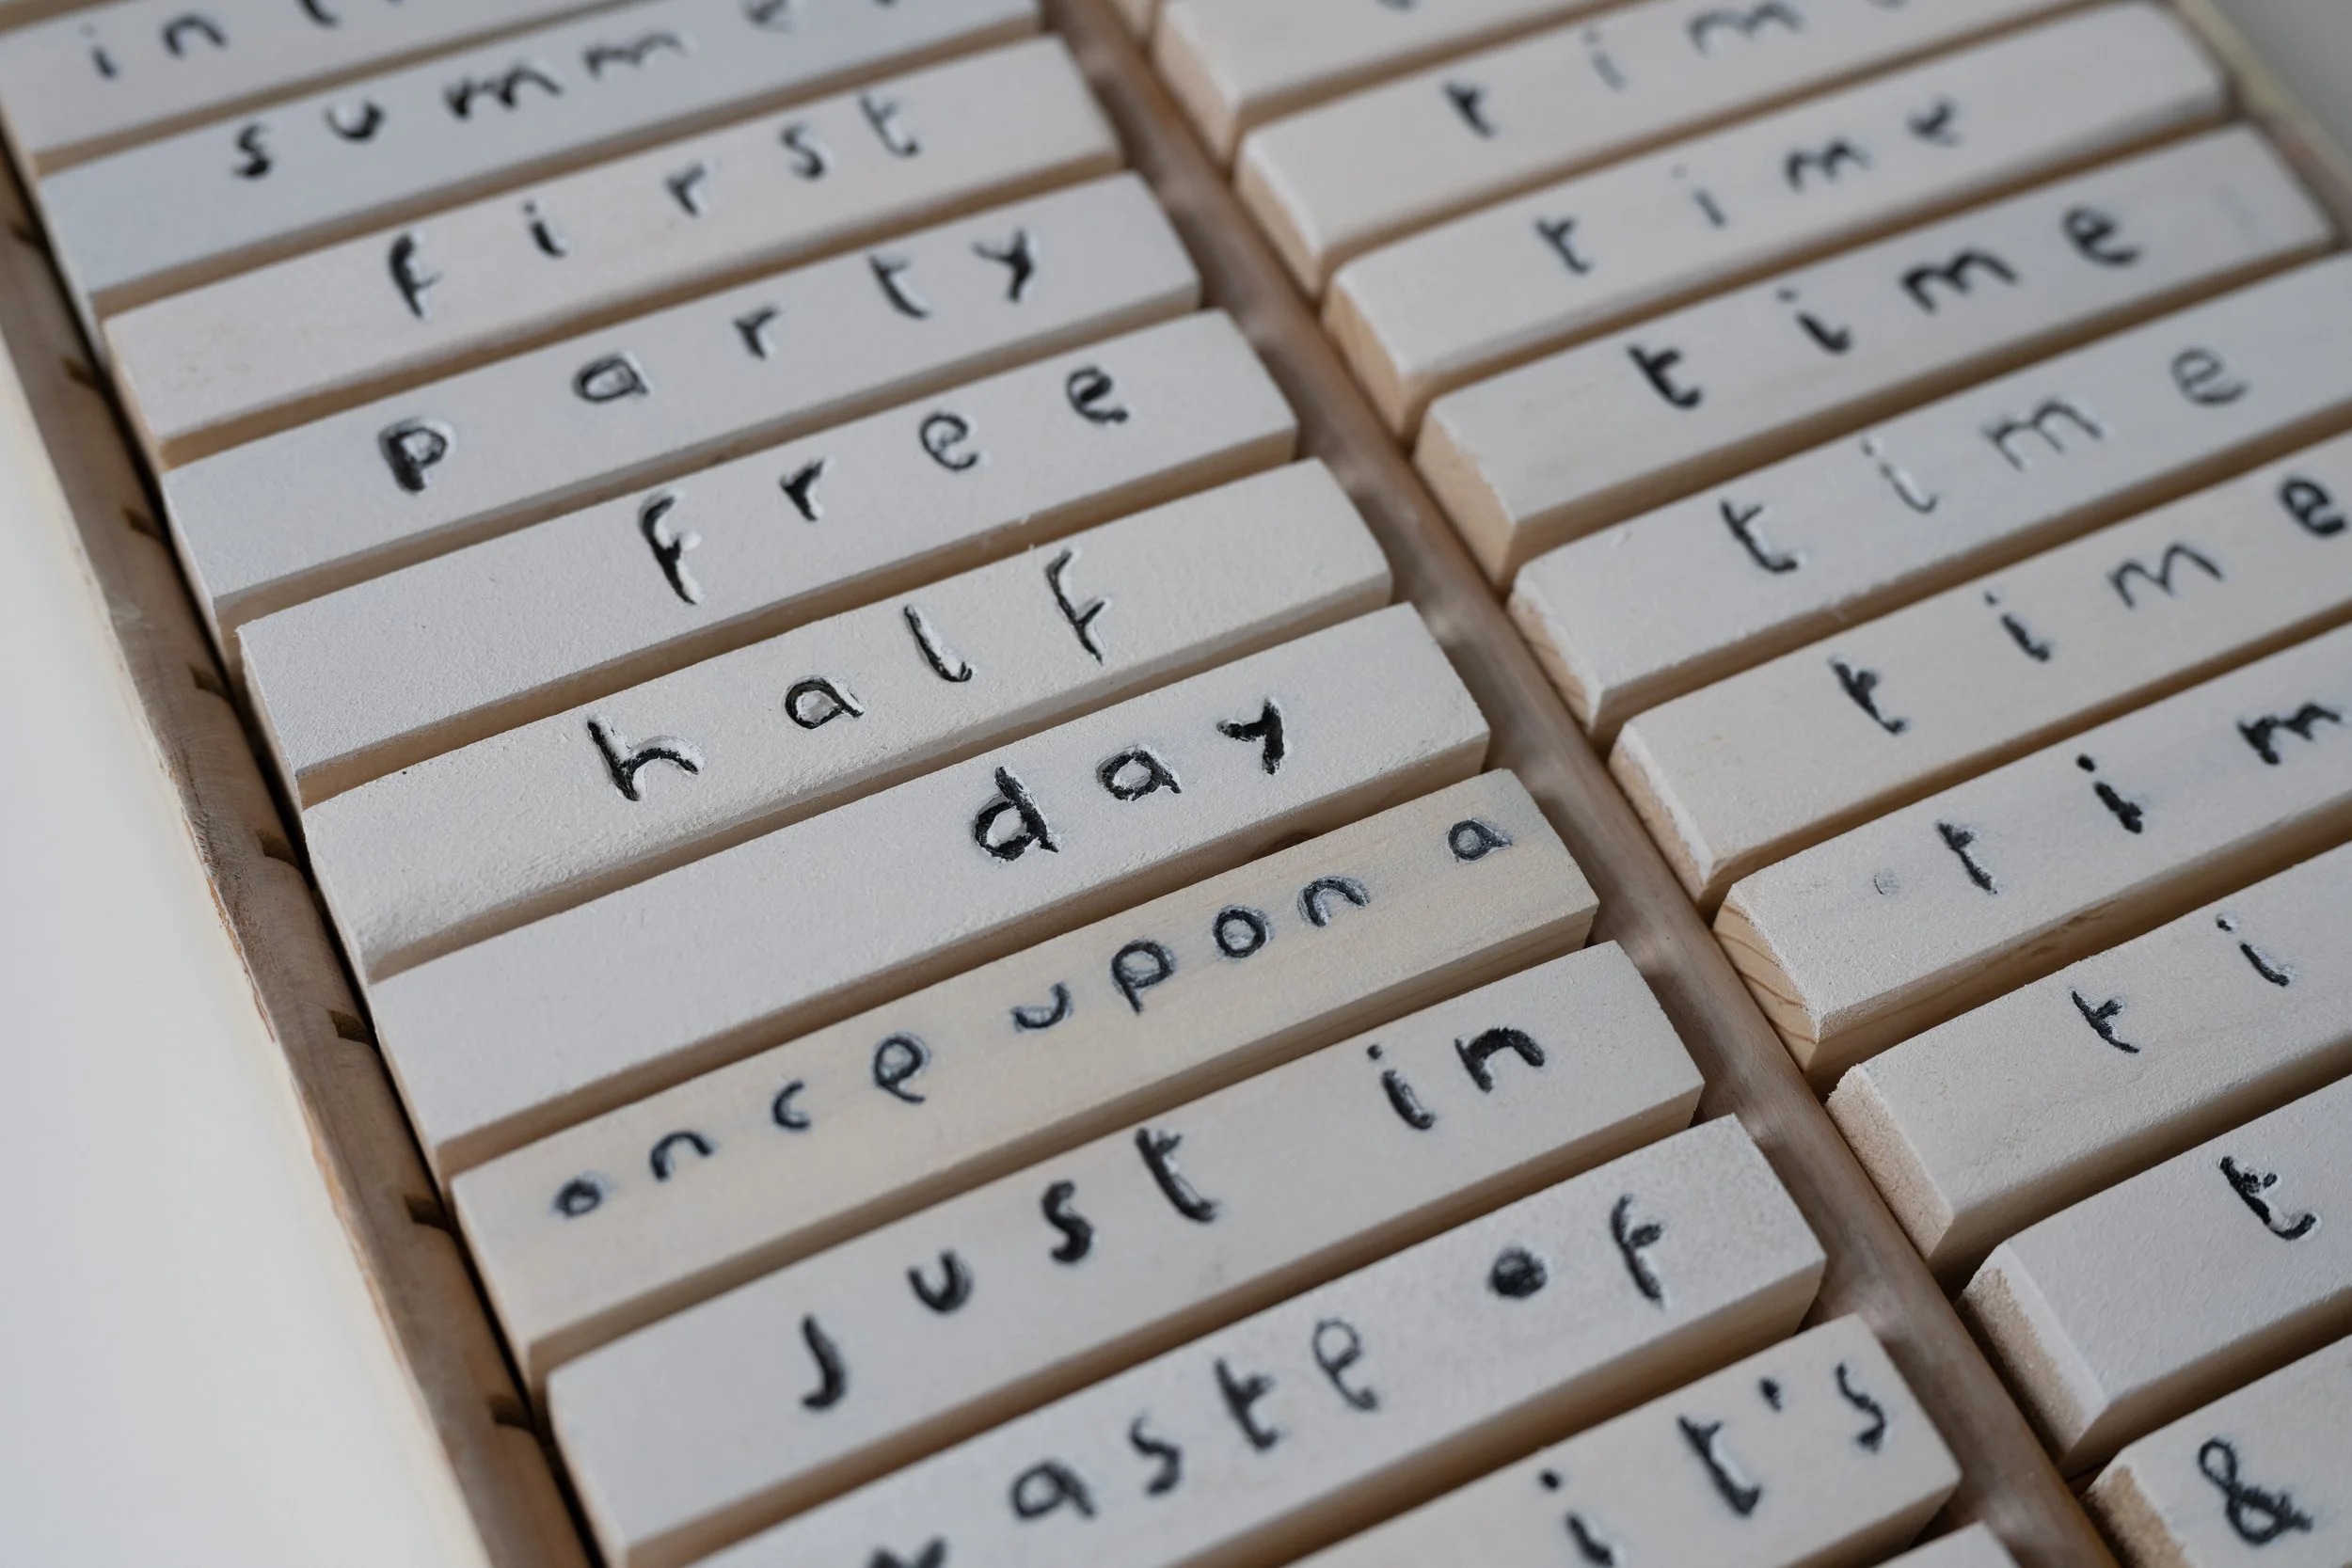 summer
first
party
free
half
day
once upon a
just in
waste of
it's
time
time
time
time
time
&